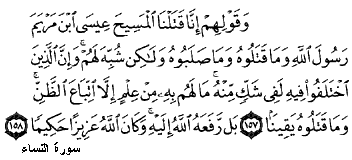 وَقَوْلِهِمْ إِنَّا قَتَلْنَا ٱلْمَسِيحَ عِيسَى ٱبْنَ مَرْيَمَ
رَسُولَ ٱللَّهِ وَمَا قَتَلُوهُ وَمَا صَلَبُوهُ وَلَٰكِن شُبِّهَ لَهُمْ ۚ وَإِنَّ ٱلَّذِينَ
ٱخْتَلَفُوا۟ فِيهِ لَفِى شَكٍّ مِّنْهُ ۚ مَا لَهُم بِهِۦ مِنْ عِلْمٍ إِلَّا ٱتِّبَاعَ ٱلظَّنِّ ۚ
وَمَا قَتَلُوهُ يَقِينًۢا ﴿١٥٧﴾ بَل رَّفَعَهُ ٱللَّهُ إِلَيْهِ ۚ وَكَانَ ٱللَّهُ عَزِيزًا حَكِيمًا ﴿١٥٨﴾
سورة النساء